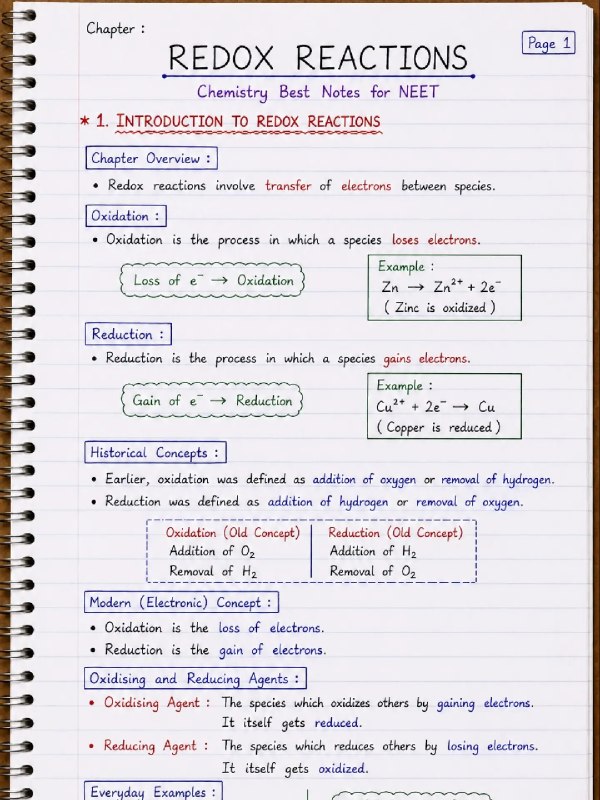 Chapter :
Page 1
REDOX REACTIONS
Chemistry Best Notes for NEET
* 1. INTRODUCTION TO REDOX REACTIONS
Chapter Overview :
• Redox reactions involve transfer of electrons between species.
Oxidation :
• Oxidation is the process in which a species loses electrons.
Loss of e⁻ → Oxidation
Example :
Zn → Zn²⁺ + 2e⁻
( Zinc is oxidized )
Reduction :
• Reduction is the process in which a species gains electrons.
Gain of e⁻ → Reduction
Example :
Cu²⁺ + 2e⁻ → Cu
( Copper is reduced )
Historical Concepts :
• Earlier, oxidation was defined as addition of oxygen or removal of hydrogen.
• Reduction was defined as addition of hydrogen or removal of oxygen.
Oxidation (Old Concept) Reduction (Old Concept)
Addition of O₂ Addition of H₂
Removal of H₂ Removal of O₂
Modern (Electronic) Concept :
• Oxidation is the loss of electrons.
• Reduction is the gain of electrons.
Oxidising and Reducing Agents :
• Oxidising Agent : The species which oxidizes others by gaining electrons.
It itself gets reduced.
• Reducing Agent : The species which reduces others by losing electrons.
It itself gets oxidized.
Everyday Examples :